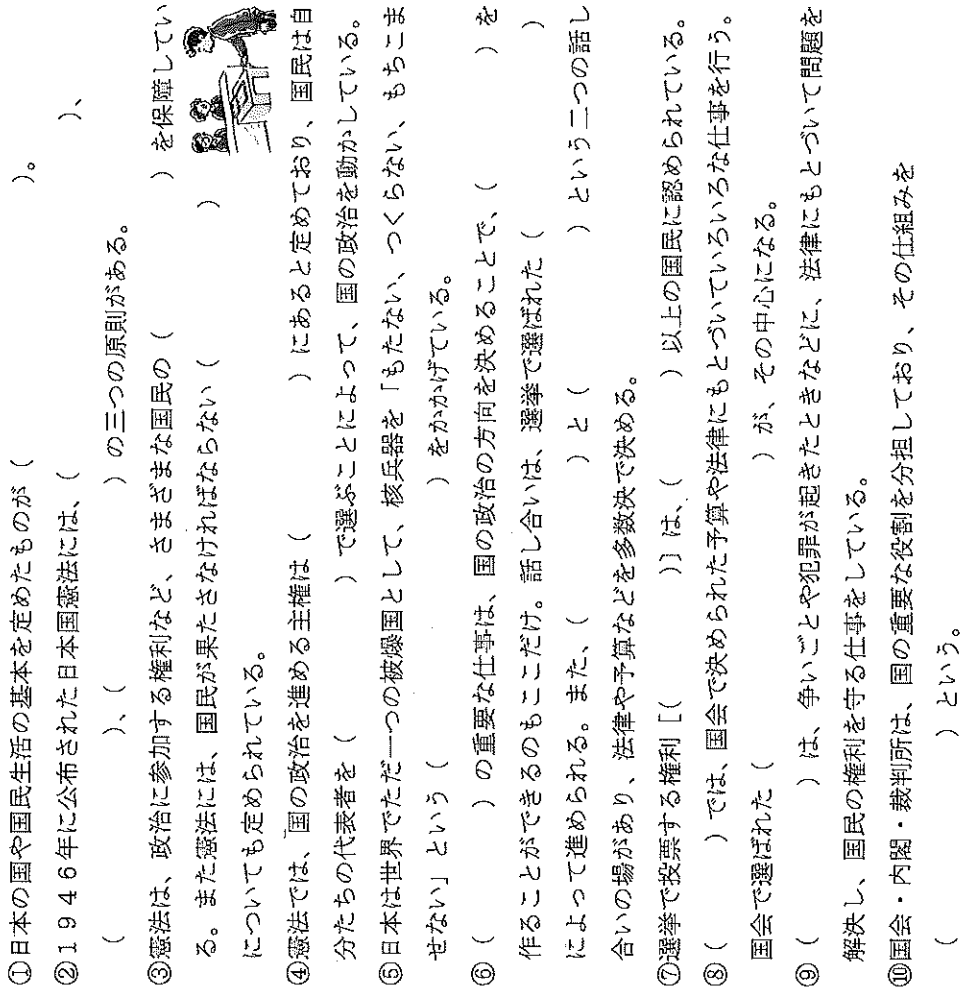 ①日本の国や国民生活の基本を定めたものが（　　　　　　　　）。
②１９４６年に公布された日本国憲法には、（　　　　　　　　）、
（　　　　　　　　）、（　　　　　　　　）の三つの原則がある。
③憲法は、政治に参加する権利など、さまざまな国民の（　　　　　　　　）を保障してい
る。また憲法には、国民が果たさなければならない（　　　　　　　　）
についても定められている。
④憲法では、国の政治を進める主権は（　　　　　　　　）にあると定めており、国民は自
分たちの代表者を（　　　　　　　　）で選ぶことによって、国の政治を動かしている。
⑤日本は世界でただ一つの被爆国として、核兵器を「もたない、つくらない、もちこま
せない」という（　　　　　　　　）をかかげている。
⑥（　　　　　　　　）の重要な仕事は、国の政治の方向を決めることで、（　　　　　　　　）を
作ることができるのもここだけ。話し合いは、選挙で選ばれた（　　　　　　　　）
によって進められる。また、（　　　　　　　　）と（　　　　　　　　）という二つの話し
合いの場があり、法律や予算などを多数決で決める。
⑦選挙で投票する権利［（　　　　　　　　）］は、（　　　　　　　　）以上の国民に認められている。
⑧（　　　　　　　　）では、国会で決められた予算や法律にもとづいていろいろな仕事を行う。
国会で選ばれた（　　　　　　　　）が、その中心になる。
⑨（　　　　　　　　）は、争いごとや犯罪が起きたときなどに、法律にもとづいて問題を
解決し、国民の権利を守る仕事をしている。
⑩国会・内閣・裁判所は、国の重要な役割を分担しており、その仕組みを
（　　　　　　　　）という。